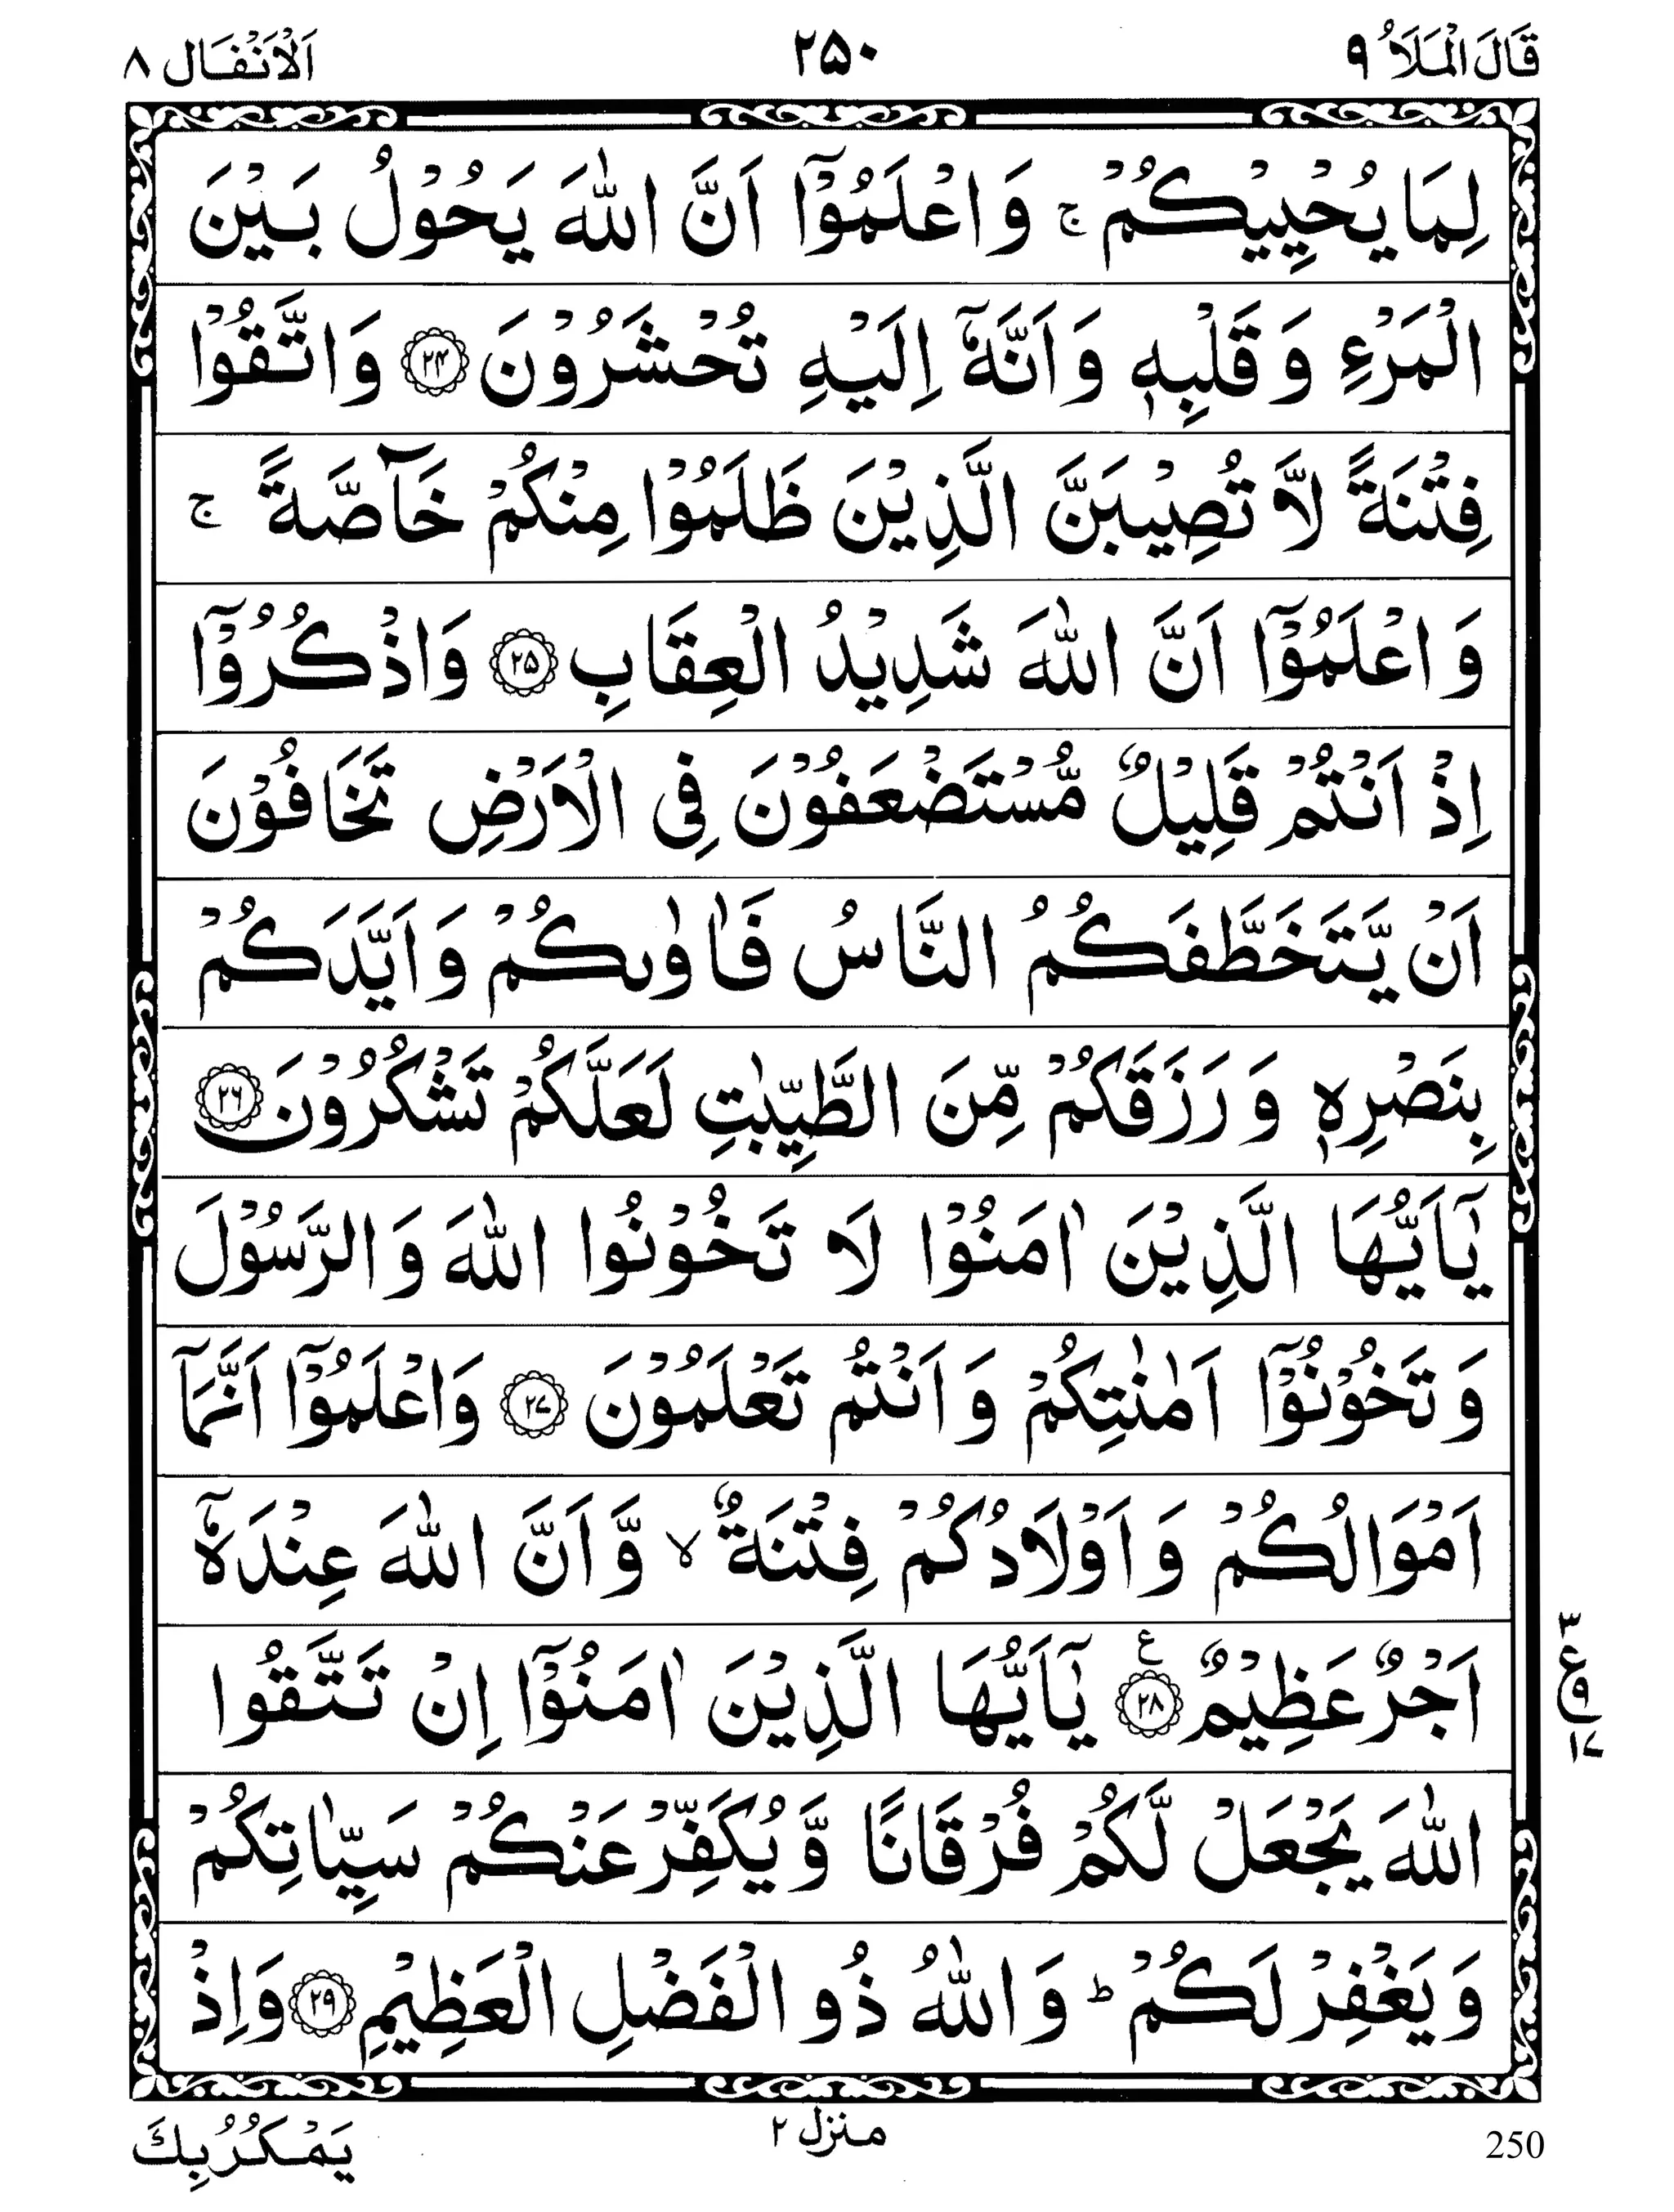 قَالَ الْمَلَاُ ٩ ٢٥٠ اَلْاَنْفَال ٨
لِمَا يُحْيِيْكُمْ ۚ وَاعْلَمُوْۤا اَنَّ اللّٰهَ يَحُوْلُ بَيْنَ
الْمَرْءِ وَقَلْبِهٖ وَاَنَّهٗۤ اِلَيْهِ تُحْشَرُوْنَ ﴿۲۴﴾ وَاتَّقُوْا
فِتْنَةً لَّا تُصِيْبَنَّ الَّذِيْنَ ظَلَمُوْا مِنْكُمْ خَآصَّةً ۚ
وَاعْلَمُوْۤا اَنَّ اللّٰهَ شَدِيْدُ الْعِقَابِ ﴿۲۵﴾ وَاذْكُرُوْۤا
اِذْ اَنْتُمْ قَلِيْلٌ مُّسْتَضْعَفُوْنَ فِى الْاَرْضِ تَخَافُوْنَ
اَنْ يَّتَخَطَّفَكُمُ النَّاسُ فَاٰوٰىكُمْ وَاَيَّدَكُمْ
بِنَصْرِهٖ وَرَزَقَكُمْ مِّنَ الطَّيِّبٰتِ لَعَلَّكُمْ تَشْكُرُوْنَ ﴿۲۶﴾
يٰۤاَيُّهَا الَّذِيْنَ اٰمَنُوْا لَا تَخُوْنُوا اللّٰهَ وَالرَّسُوْلَ
وَتَخُوْنُوْۤا اَمٰنٰتِكُمْ وَاَنْتُمْ تَعْلَمُوْنَ ﴿۲۷﴾ وَاعْلَمُوْۤا اَنَّمَاۤ
اَمْوَالُكُمْ وَاَوْلَادُكُمْ فِتْنَةٌ ۙ وَّاَنَّ اللّٰهَ عِنْدَهٗۤ
اَجْرٌ عَظِيْمٌ ﴿۲۸﴾ ع يٰۤاَيُّهَا الَّذِيْنَ اٰمَنُوْۤا اِنْ تَتَّقُوا
٣ ع ٩ ١٧
اللّٰهَ يَجْعَلْ لَّكُمْ فُرْقَانًا وَّيُكَفِّرْ عَنْكُمْ سَيِّاٰتِكُمْ
وَيَغْفِرْ لَكُمْ ؕ وَاللّٰهُ ذُو الْفَضْلِ الْعَظِيْمِ ﴿۲۹﴾ وَاِذْ
250 منزل ٢ يَمْكُرُ بِكَ